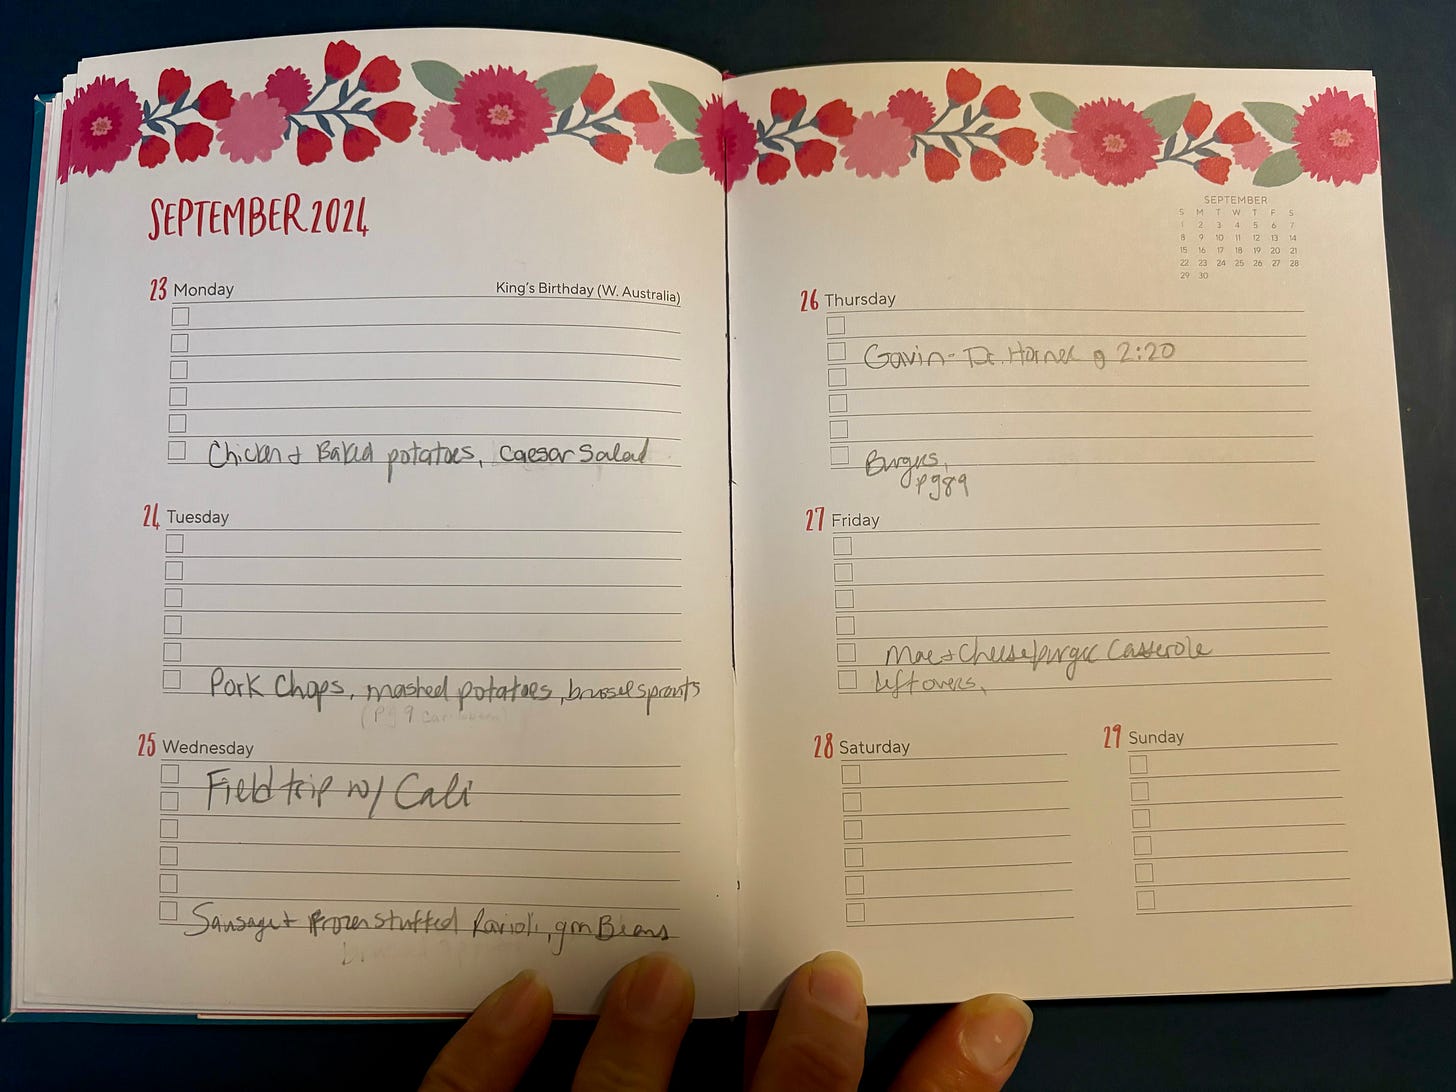 SEPTEMBER 2024
23 Monday King's Birthday (W. Australia)
Chicken + Baked potatoes, Caesar Salad
24 Tuesday
Pork Chops, mashed potatoes, brussel sprouts
(pg 9
25 Wednesday
Field trip w/ Cali
Sausage + Frozen stuffed Ravioli, grn Beans
SEPTEMBER
S M T W T F S
1 2 3 4 5 6 7
8 9 10 11 12 13 14
15 16 17 18 19 20 21
22 23 24 25 26 27 28
29 30
26 Thursday
Gavin - Dr. @ 2:20
Burgers,
pg 89
27 Friday
Mac + Cheeseburger Casserole
leftovers,
28 Saturday
29 Sunday